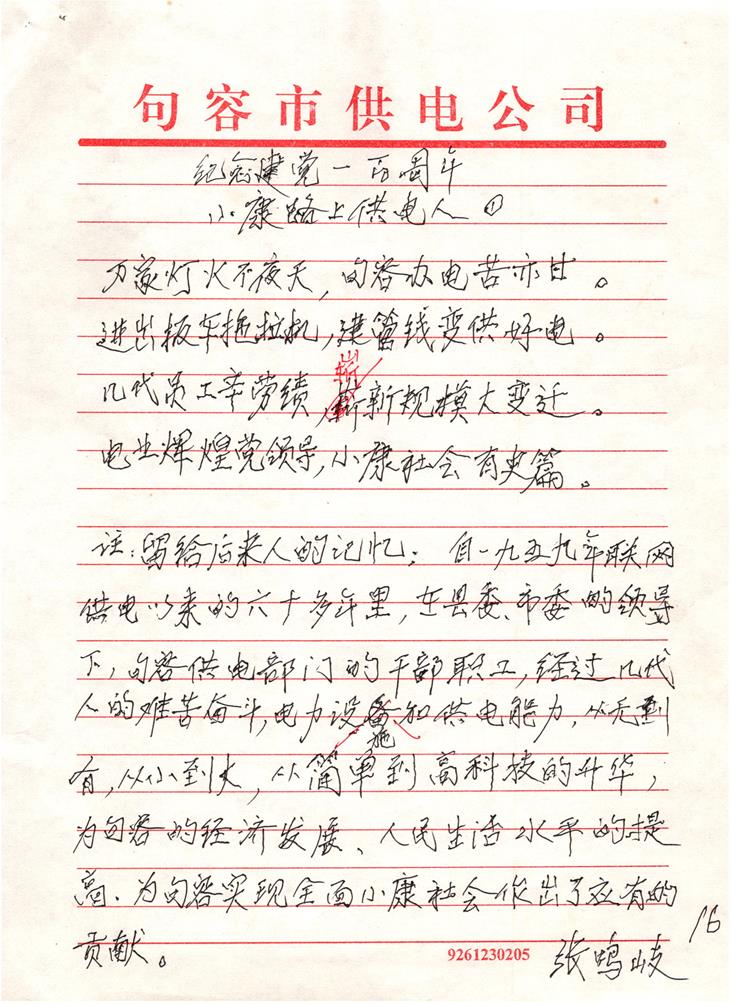 句容市供电公司
纪念建党一百周年
小康路上供电人①
万家灯火不夜天，句容办电苦亦甘。
进出板车拖拉机，建管钱变供好电。
几代员工辛劳绩，崭新规模大变迁。
电业辉煌党领导，小康社会有史篇。
注：留给后来人的记忆：自一九五九年联网
供电以来的六十多年里，在县委、市委的领导
下，句容供电部门的干部职工，经过几代
人的难苦奋斗，电力设施和供电能力，从无到
有，从小到大，从简单到高科技的升华，
为句容的经济发展、人民生活水平的提
高、为句容实现全面小康社会作出了应有的
贡献。
9261230205
张鸣岐
16